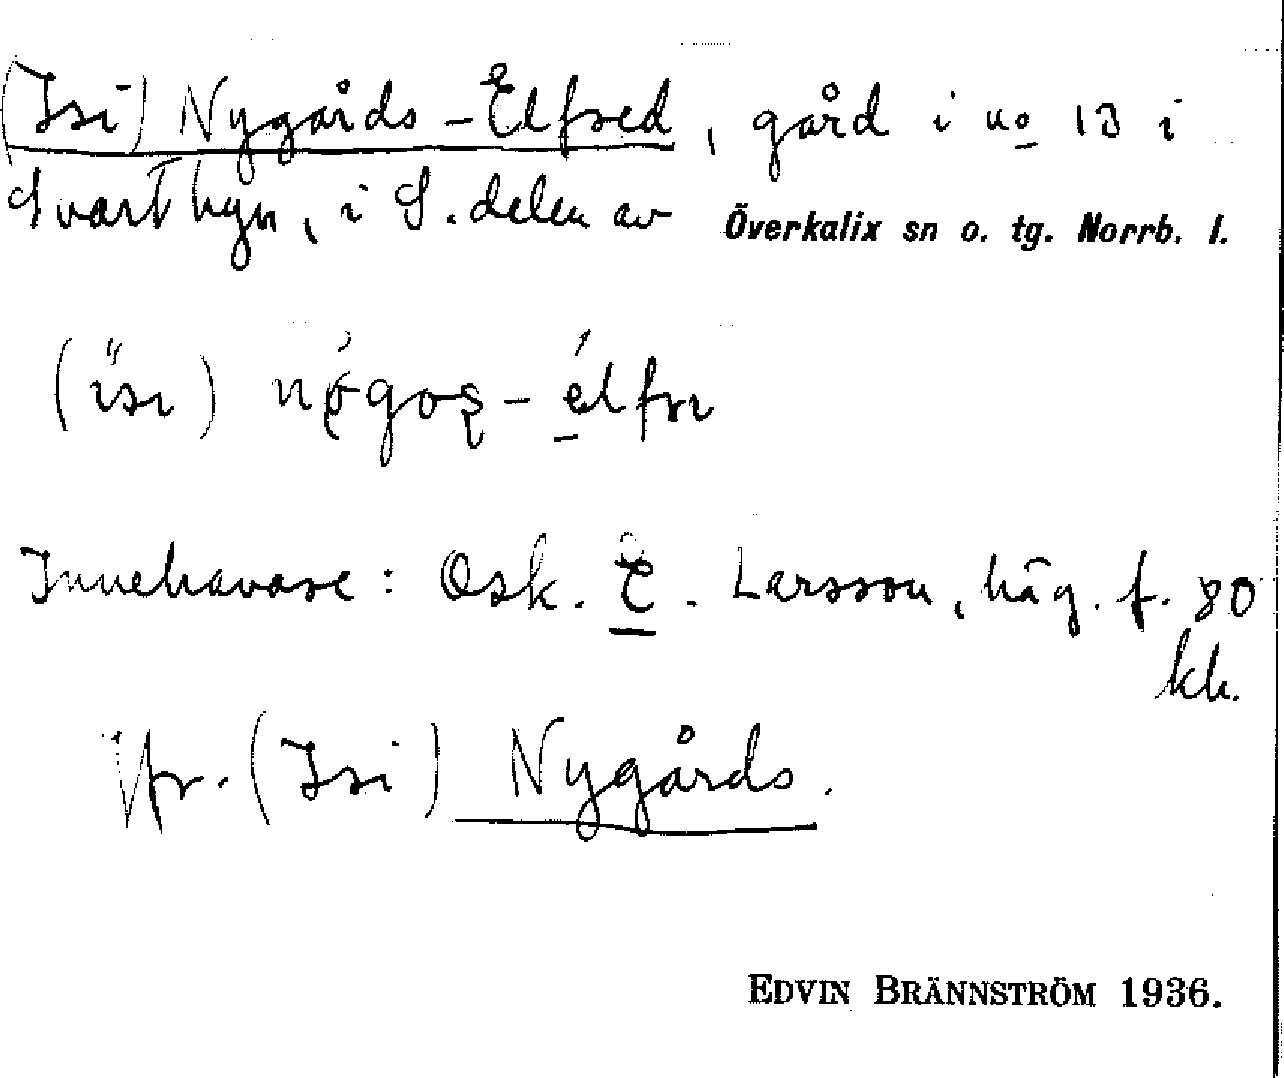 (Isi) Nygårds-Elfred, gård i no 13 i
Svartbyn, i S. delen av Överkalix sn o. tg. Norrb. l.
Innehavare: Osk. E. Larsson, häg. f. 80
kh.
Jfr. (Isi) Nygårds.
EDVIN BRÄNNSTRÖM 1936.